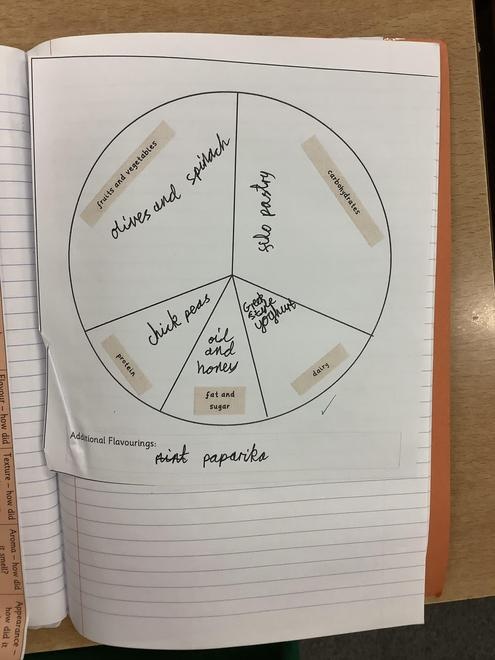 fruits and vegetables
olives and spinach
carbohydrates
filo pastry
protein
chick peas
oil
and
honey
fat and
sugar
Greek
style
yoghurt
dairy
Additional Flavourings:
mint paprika
Flavour – how did
Texture – how did
Aroma – how did
it smell?
Appearance –
how did it